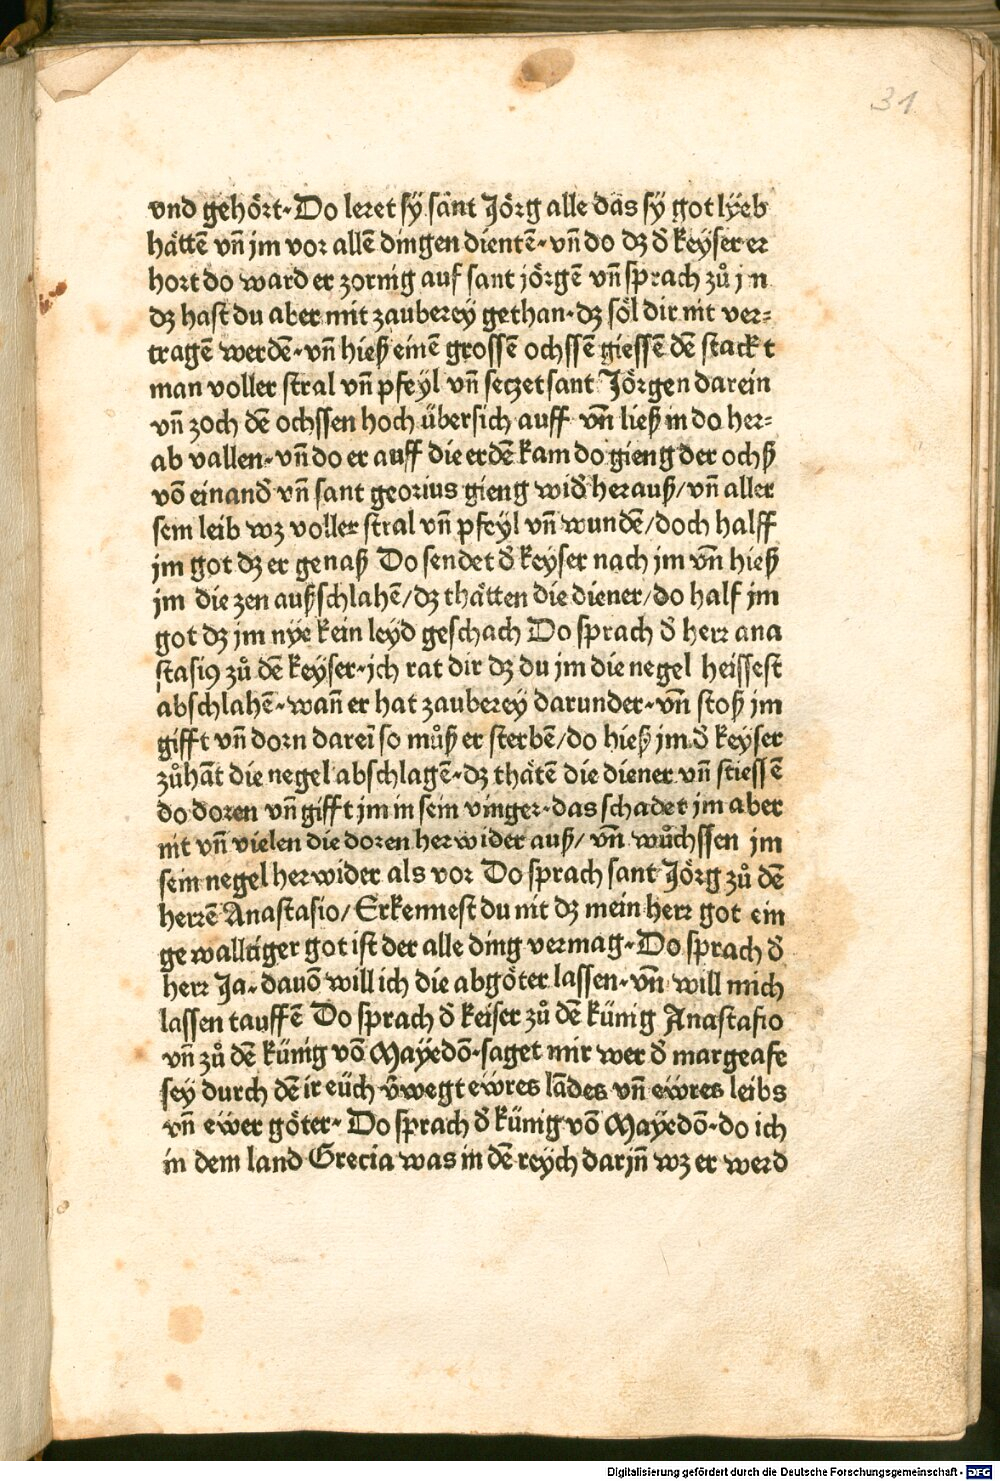 31
vnd gehört. Do leret sÿ sant Jörg alle das sÿ got lÿeb
hättē vn̄ jm vor allē dingen dientē. vn̄ do dz d̄ keÿser er
hort do ward er zornig auf sant jörgē vn̄ sprach zů jn
dz hast du aber mit zauberey gethan. dz söl dir nit ver⸗
tragē werdē. vn̄ hieß einē grossē ochssē giessē dē stackt
man voller stral vn̄ pfeÿl vn̄ seczet sant Jörgen darein
vn̄ zoch dē ochssen hoch übersich auff vn̄ ließ in do her⸗
ab vallen. vn̄ do er auff die erdē kam do gieng der ochß
vō einand̄ vn̄ sant georius gieng wid̄ herauß/ vn̄ aller
sein leib wz voller stral vn̄ pfeÿl vn̄ wundē/ doch halff
jm got dz er genaß Do sendet d̄ keÿser nach jm vn̄ hieß
jm die zen außschlahē/ dz thätten die diener/ do half jm
got dz jm nÿe kein leÿd geschach Do sprach d̄ herr ana
stasiꝰ zů dē keÿser. ich rat dir dz du jm die negel heissest
abschlahē. wan̄ er hat zauberey darunder. vn̄ stoß jm
gifft vn̄ dorn dareī so můß er sterbē/ do hieß jm d̄ keÿser
zůhāt die negel abschlagē. dz thätē die diener vn̄ stiessē
do doren vn̄ gifft jm in sein vinger. das schadet jm aber
nit vn̄ vielen die doren herwider auß/ vn̄ wůchssen jm
sein negel herwider als vor Do sprach sant Jörg zů dē
herrē Anastasio/ Erkennest du nit dz mein herr got ein
gewaltiger got ist der alle ding vermag. Do sprach d̄
herr Ja. dauō will ich die abgöter lassen. vn̄ will mich
lassen tauffē Do sprach d̄ keiser zů dē künig Anastasio
vn̄ zů dē künig vō Mayedō. saget mir wer d̄ margrafe
sey durch dē ir eüch v̄wegt ewres lādes vn̄ ewres leibs
vn̄ ewer göter. Do sprach d̄ künig vō Mayedō. do ich
in dem land Grecia was in dē reÿch darjn̄ wz er werd
Digitalisierung gefördert durch die Deutsche Forschungsgemeinschaft - DFG